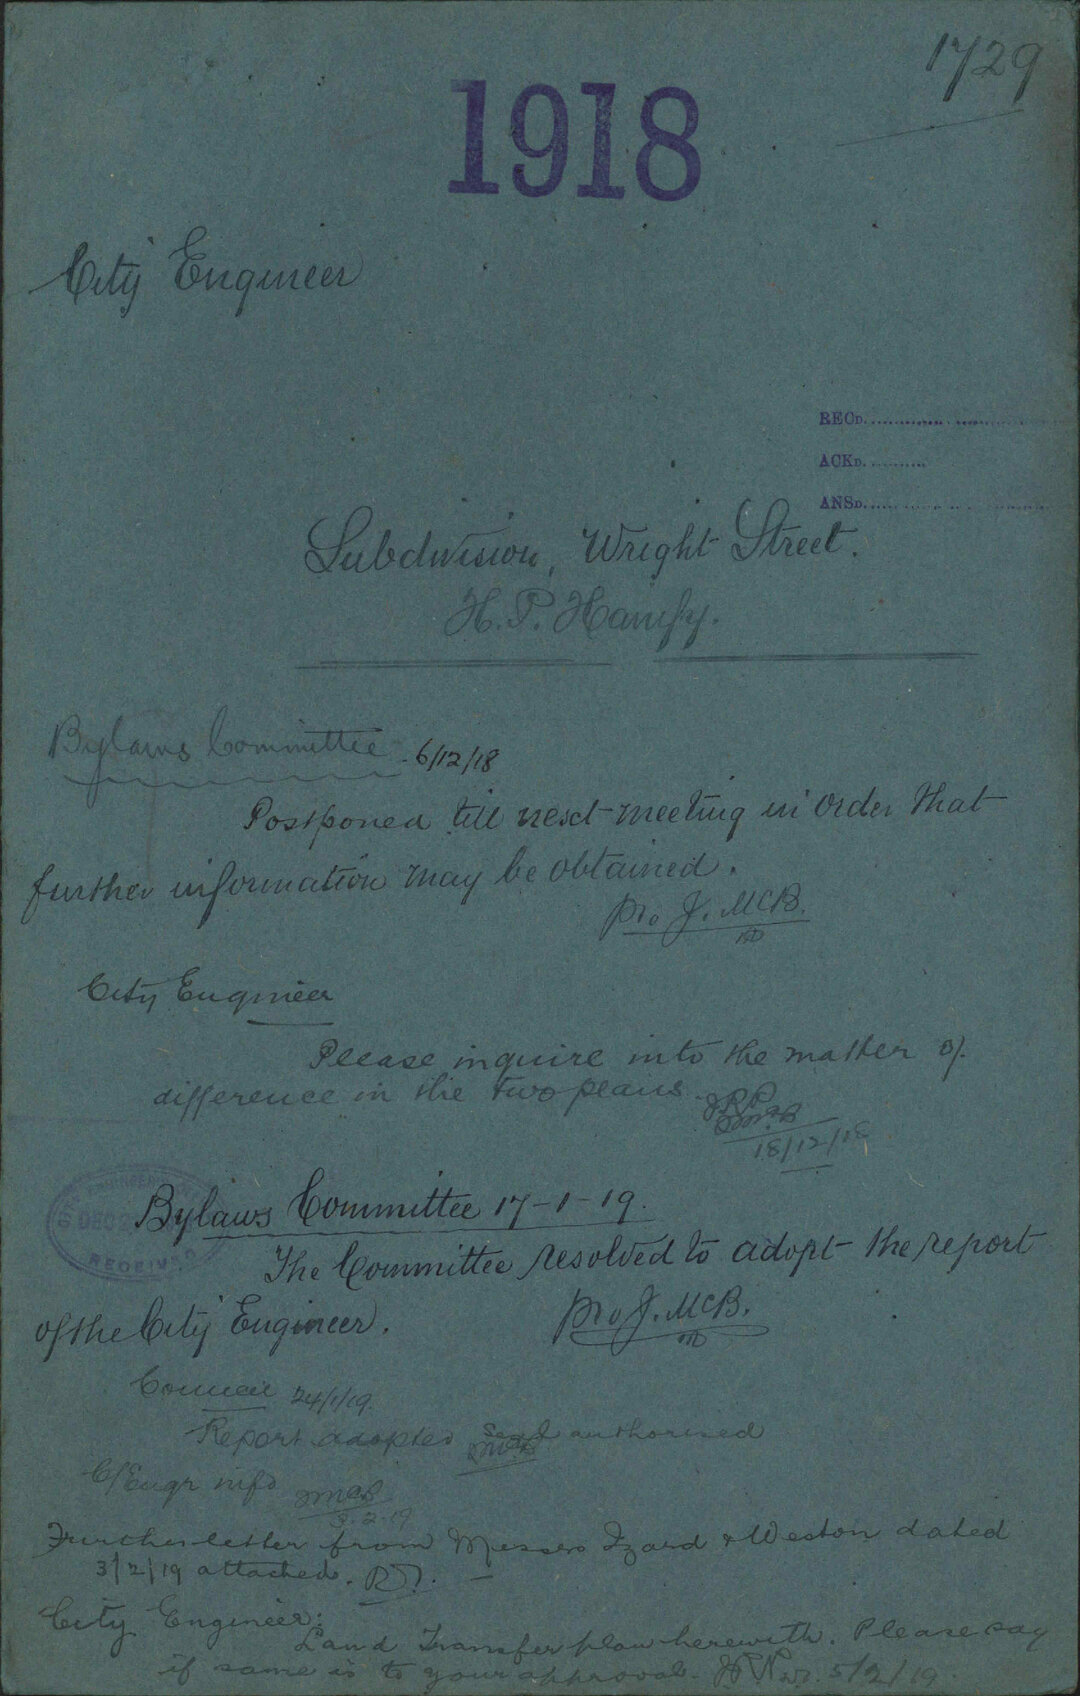 1729
1918
City Engineer
RECD.
ACKD.
ANSD.
Subdivision, Wright Street.
H. P. Hanify.
Bylaws Committee 6/12/18
Postponed till next meeting in order that
further information may be obtained.
pro J. McB.
City Engineer
Please inquire into the matter of
difference in the two plans.
18/12/18
DEC
RECEIVED
Bylaws Committee 17-1-19.
The Committee resolved to adopt the report
of the City Engineer.
pro J. McB.
Council 24/1/19.
Report adopted Seal authorised
C/Engr info
3.2.19
Further letter from Messrs Izard & Weston dated
3/2/19 attached.
City Engineer:
Land Transfer plan herewith. Please say
if same is to your approval. 5/2/19.